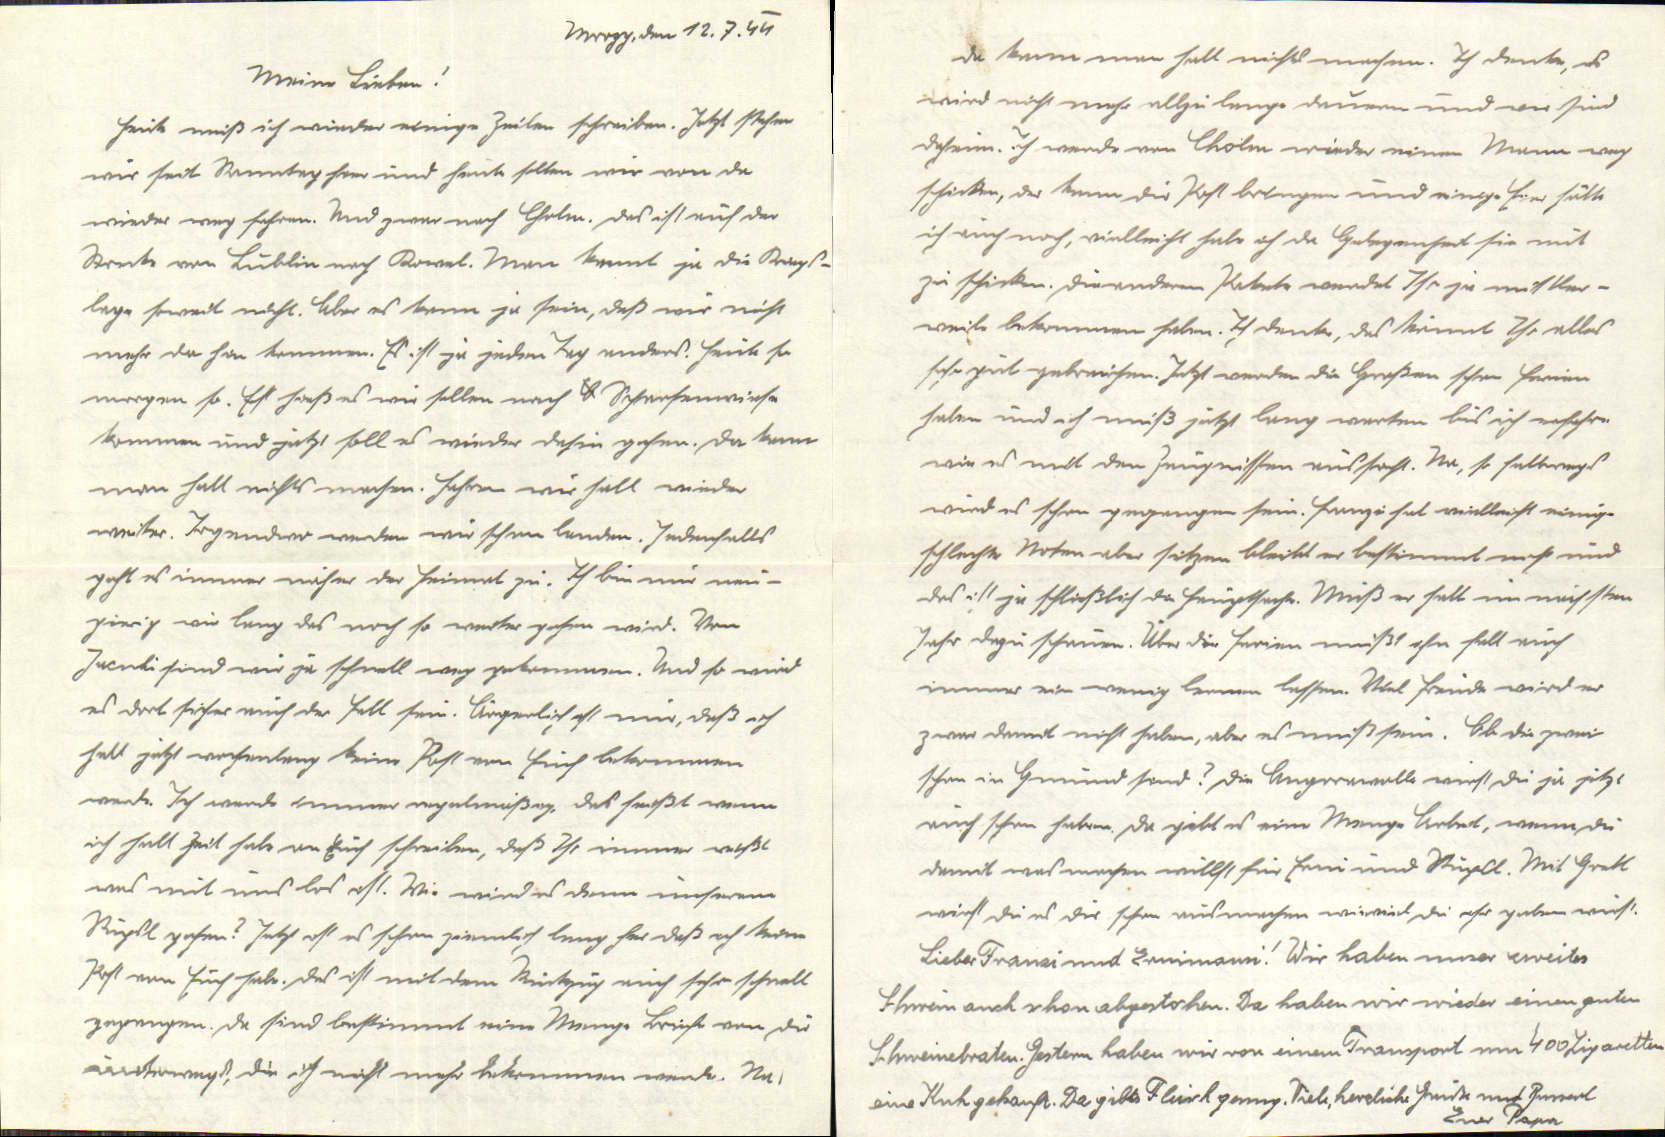 Mrozy, den 12.7.44
Meine Lieben!
Heute muß ich wieder einige Zeilen schreiben. Jetzt stehen
wir seit Sonntag hier und heute sollen wir von da
wieder weg fahren. Und zwar nach Cholm. Das ist auf der
Strecke von Lublin nach Kowel. Man kennt ja die Kriegs-
lage soweit nicht. Aber es kann ja sein, daß wir nicht
mehr da hin kommen. Es ist ja jeden Tag anders. Heute so
morgen so. Erst hieß es wir sollen nach Scharfenwiese
kommen und jetzt soll es wieder dahin gehen. Da kann
man halt nichts machen. Fahren wir halt wieder
weiter. Irgendwo werden wir schon landen. Jedenfalls
geht es immer näher der Heimat zu. Ich bin nur neu-
gierig wie lang das noch so weiter gehen wird. Von
sind wir ja schnell weg gekommen. Und so wird
es dort sicher auch der Fall sein. Ärgerlich ist nur, daß ich
halt jetzt wochenlang keine Post von Euch bekommen
werde. Ich werde immer regelmäßig, das heißt wenn
ich halt Zeit habe an Euch schreiben, daß Ihr immer wißt
was mit uns los ist. Wie wird es denn unserem
Stupsl gehen? Jetzt ist es schon ziemlich lang her daß ich keine
Post von Euch habe. Das ist mit dem Rückzug auch sehr schnell
gegangen. Da sind bestimmt eine Menge Briefe von Dir
unterwegs, die ich nicht mehr bekommen werde. Na,
da kann man halt nichts machen. Ich denke, es
wird nicht mehr allzu lange dauern und wir sind
daheim. Ich werde von Cholm wieder einen Mann weg
schicken, der kann die Post bringen und einige Eier hätte
ich auch noch, vielleicht habe ich da Gelegenheit sie mit
zu schicken. Die anderen Pakete werdet Ihr ja mittler-
weile bekommen haben. Ich denke, das könnt Ihr alles
sehr gut gebrauchen. Jetzt werden die Großen schon Ferien
haben und ich muß jetzt lang warten bis ich erfahre
wie es mit den Zeugnissen aussieht. Na, so halbwegs
wird es schon gegangen sein. Franzi hat vielleicht einige
schlechte Noten aber sitzen bleibt er bestimmt nicht und
das ist ja schließlich die Hauptsache. Muß er halt im nächsten
Jahr dazu schauen. Über die Ferien mußt ihn halt auch
immer ein wenig lernen lassen. Viel Freude wird er
zwar damit nicht haben, aber es muß sein. Ob die zwei
schon in Gmünd sind? Die Angorawolle wirst du ja jetzt
auch schon haben. Da gibt es eine Menge Arbeit, wenn du
damit was machen willst für Erni und Stupsl. Mit Gretl
wirst du es dir schon ausmachen wieviel du ihr geben wirst.
Lieber Franzi und Ernimausi! Wir haben unser zweites
Schwein auch schon abgestochen. Da haben wir wieder einen guten
Schweinebraten. Gestern haben wir von einem Transport um 400 Zigaretten
eine Kuh gekauft. Da gibts Fleisch genug. Viele, herzliche Grüße und Busserl
Euer Papa